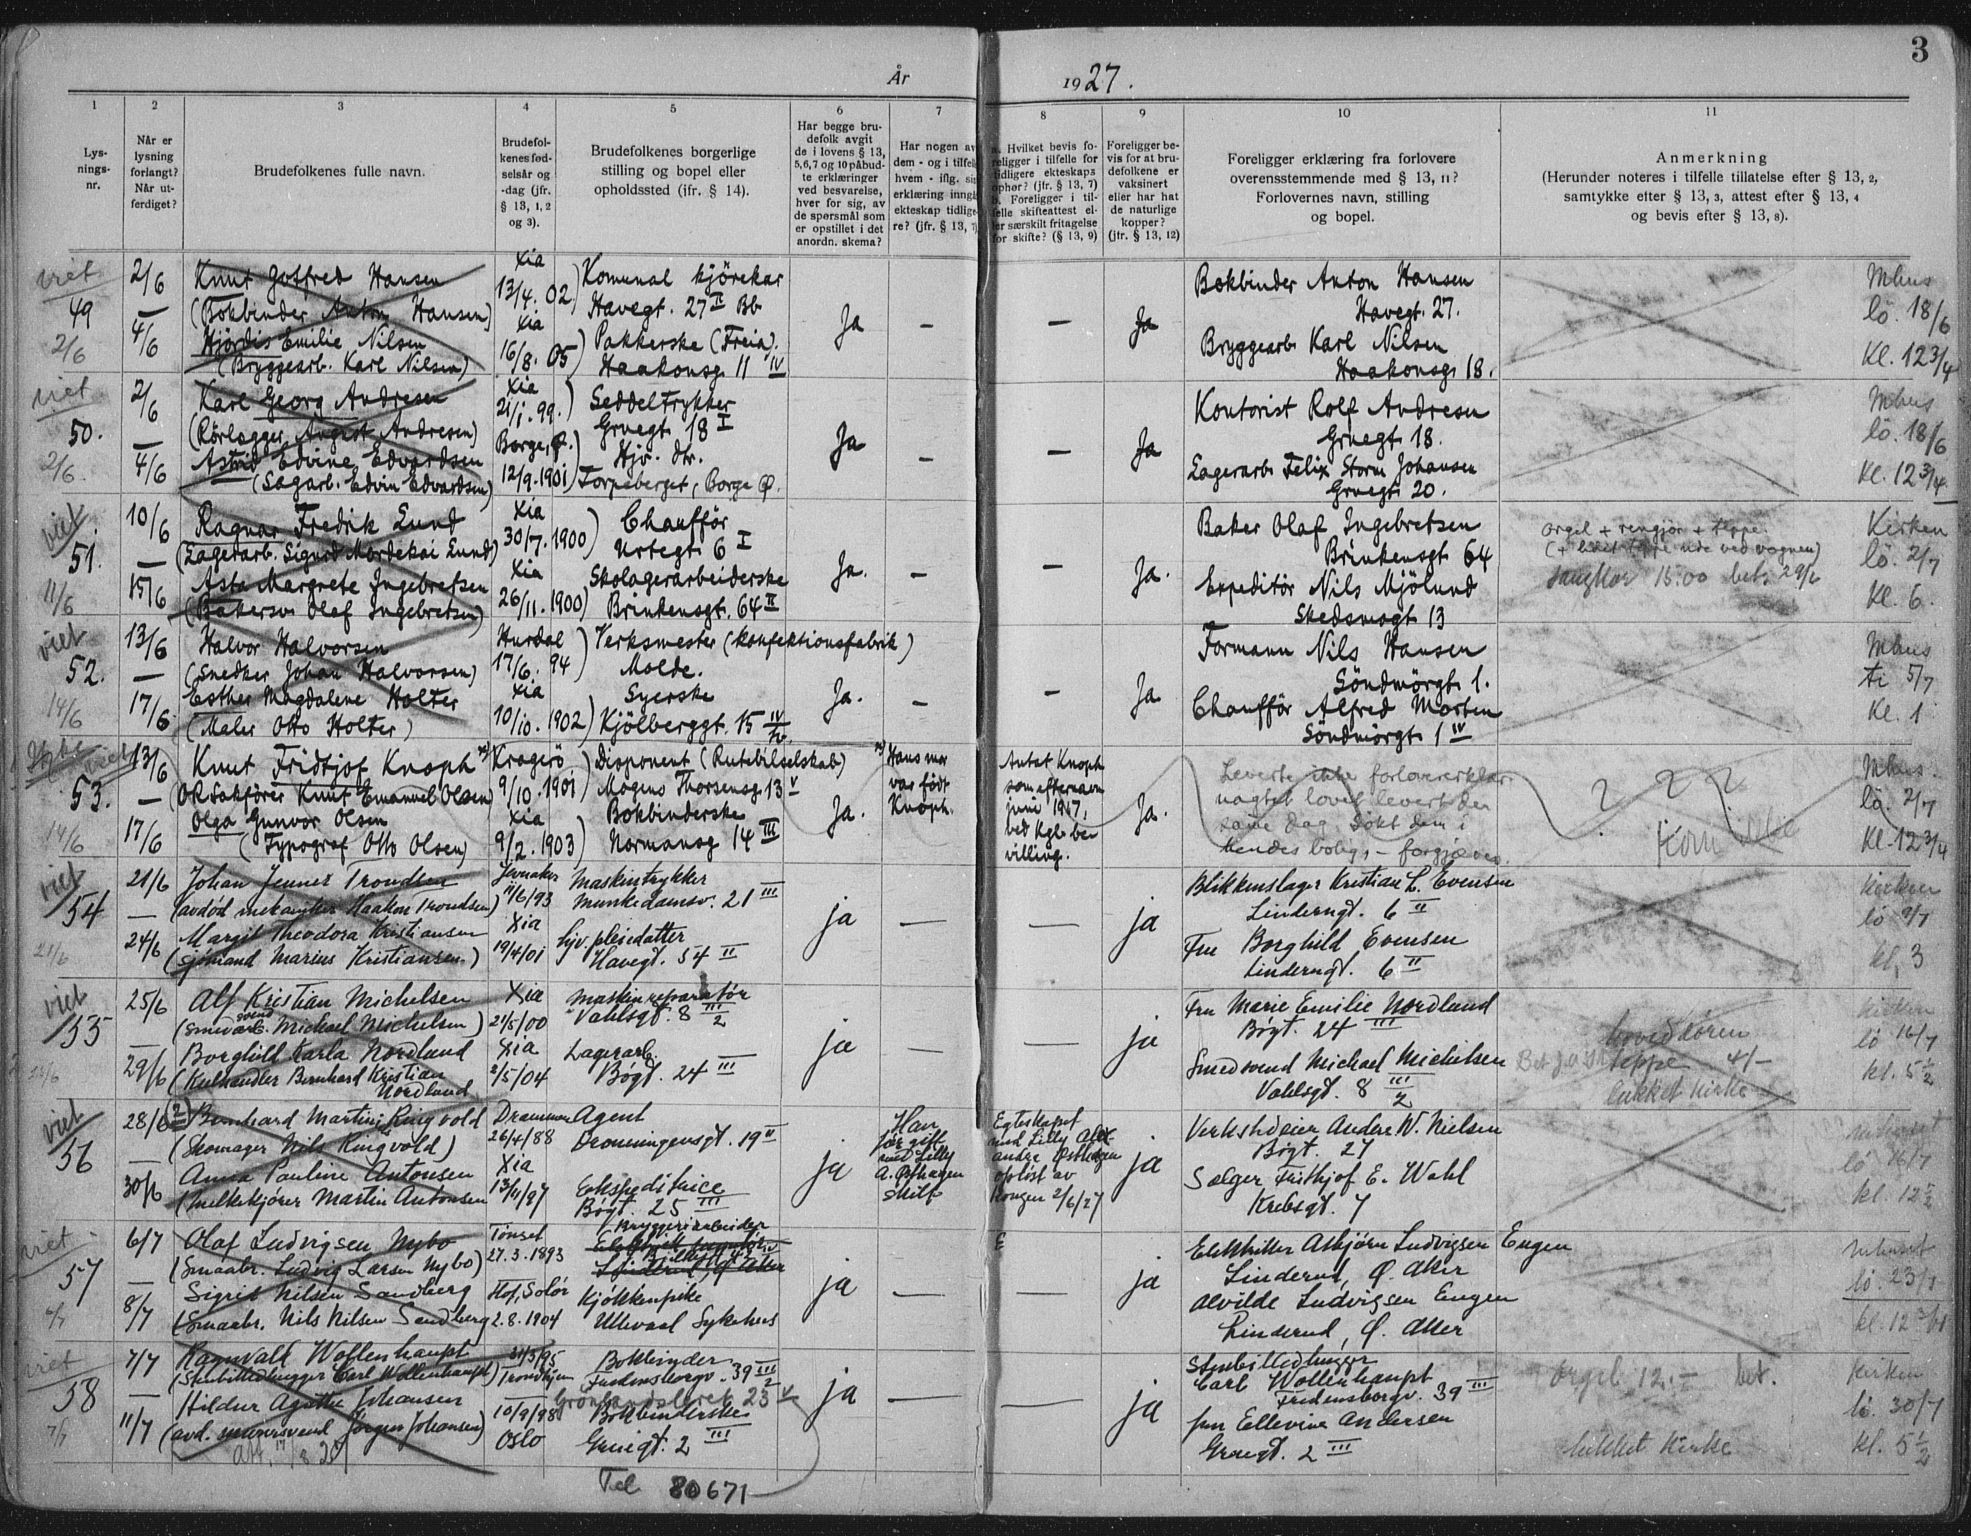 3
År 1927.
1 2 3 4 5 6 7 8 9 10 11
Lys-
nings-
nr.
Når er
lysning
forlangt?
Når ut-
ferdiget?
Brudefolkenes fulle navn.
Brudefol-
kenes fød-
selsår og
-dag (jfr.
§ 13, 1, 2
og 3).
Brudefolkenes borgerlige
stilling og bopel eller
opholdssted (jfr. § 14).
Har begge bru-
defolk avgit
de i lovens § 13,
5, 6, 7 og 10 påbud-
te erklæringer
ved besvarelse,
hver for sig, av
de spørsmål som
er opstillet i det
anordn. skema?
Har nogen av
dem - og i tilfel
hvem - iflg. si
erklæring inngå
ekteskap tidlige-
re? (jfr. § 13, 7)
a. Hvilket bevis fo-
religger i tilfelle for
tidligere ekteskaps
ophør? (jfr. § 13, 7)
b. Foreligger i til-
felle skifteattest el-
ler særskilt fritagelse
for skifte? (§ 13, 9)
Foreligger be-
vis for at bru-
defolkene er
vaksinert
eller har hat
de naturlige
kopper?
(jfr. § 13, 12)
Foreligger erklæring fra forlovere
overensstemmende med § 13, 11?
Forlovernes navn, stilling
og bopel.
Anmerkning
(Herunder noteres i tilfelle tillatelse efter § 13, 2,
samtykke efter § 13, 3, attest efter § 13, 4
og bevis efter § 13, 8).
viet
49
2/6
2/6
—
4/6
Knut Gotfred Hansen
(Bokbinder Anton Hansen)
Hjørdis Emilie Nilsen
(Bryggearb. Karl Nilsen)
Xia
13/4. 02
Xia
16/8. 05
Komunal kjørekar
Havegt. 27 II Bb
Pakkerske (Freia).
Haakonsg 11 IV
Ja
—
—
Ja
Bokbinder Anton Hansen
Havegt. 27.
Bryggearb Karl Nilsen
Haakonsg 18.
Mhus
lö. 18/6
Kl. 12 3/4
viet
50.
2/6.
2/6
—
4/6
Karl Georg Andresen
(Rörlegger August Andresen)
Astrid Edvine Edvardsen
(Sagarb. Edvin Edvardsen)
Xia
21/1. 99.
Borge, Ø.
12/9. 1901
Seddeltrykker
Gruegt 18 I
Hjv. dtr.
Torpeberget, Borge Ø.
Ja
—
—
Ja
Kontorist Rolf Andresen
Gruegt 18.
Lagerarb Felix Storm Johansen
Gruegt 20.
Mhus
lö. 18/6
Kl. 12 3/4
viet
51.
11/6
10/6
—
15/6
Ragnar Fredrik Lund
(Lagerarb. Sigurd Mordekai Lund)
Asta Margrete Ingebretsen
(Bakersv Olaf Ingebretsen)
Xia
30/7. 1900
Xia
26/11. 1900
Chaufför
Urtegt 6 I
Skolagerarbeiderske
Brinkensgt. 64 II
Ja.
—
—
Ja.
Baker Olaf Ingebretsen
Brinkensgt 64
Expeditör Nils Mjölund
Skedsmogt 13
orgel + rengjör + teppe.
ute ved vognen)
15.00 bet. 29/6
Kirken
lö. 2/7
Kl. 6.
viet
52.
14/6
13/6
—
17/6
Halvor Halvorsen
(Snedker Johan Halvorsen)
Esther Magdalene Holter
(Maler Otto Holter)
Hurdal
17/6. 94
Xia
10/10. 1902
Verksmester (Konfektionsfabrik)
Molde.
Syerske
Kjölberggt. 15 IV/IV.
Ja.
—
—
Ja
Formann Nils Hansen
Söndmörgt 1.
Chaufför Alfred Morten
Söndmörgt 1 IV
Mhus
ti 5/7
Kl. 1
viet
53.
14/6
13/6
—
17/6
Knut Fridtjof Knoph
(ORSakförer Knut Emanuel Olsen)
Olga Gunvor Olsen
(Typograf Otto Olsen)
Kragerö
9/10. 1901
Xia
9/2. 1903
Disponent (Rutebilselskab)
Mogens Thorsensg 13 V
Bokbinderske
Normansg 14 III
Ja.
Hans mor
var født
Knoph.
Antat Knoph
som efternavn
juni 1917,
ved Kgl. be-
villing.
Ja.
Leverte ikke forlovererklær.
uagtet lovet levert den
same dag. Søkt dem i
hendes bolig, – forgjæves.
? ? ? ?
Kom ikke
Mhus.
lö. 2/7
Kl. 12 3/4
viet
54
21/6
21/6
—
24/6
Johan Jenner Trondsen
(avdød mekaniker Haakon Trondsen)
Margit Theodora Kristiansen
(sjømand Marius Kristiansen)
Jevnaker
11/6/93
Xia
19/4/01
Maskintrykker
Munkedamsv. 21 III
hjv. pleiedatter
Havegt. 54 II
ja
—
—
ja
Blikkenslager Kristian L. Evensen
Linderngt. 6 II
Fru Borghild Evensen
Linderngt. 6 II
Kirken
lø 9/7
kl. 3
viet
55
25/6
—
29/6
Alf Kristian Michelsen
svend
(Smedarb. Michael Michelsen)
Borghild Karla Nordland
(Kulhandler Bernhard Kristian
Nordland
Xia
21/5/00
Xia
2/5/04
Maskinreparatør
Vahlsgt. 8 III/2
Lagerarb.
Bøgt. 24 III
ja
—
—
ja
Fru Marie Emilie Nordland
Bøgt. 24 III
Smedsvend Michael Michelsen
Vahlsgt. 8 III/2
hoveddøren
teppe 4/-
lukket kirke
Kirken
lø 16/7
kl. 5 1/2
viet
56
28/6
—
30/6
Bernhard Martin Ringvold
(Skomager Nils Ringvold)
Anna Pauline Antonsen
(Melkekjører Martin Antonsen
Drammen
26/4/88
Xia
13/11/87
Agent
Dronningensgt. 19 II
Ekspeditrice
Bøgt. 25 III
ja
Han
før gift
med Lilly
A. Østhagen
skilt
Egteskapet
med Lilly Alex-
andra Østhagen
opløst av
Kongen 2/6/27
ja
Verkstedeier Andre W. Nielsen
Bøgt. 27
Selger Frithjof E. Wahl
Krebsgt. 7
lø 16/7
kl. 12 1/2
viet
57
6/7
—
8/7
Olaf Ludvigsen Nybo
(Smaabr. Ludvig Larsen Nybo)
Sigrid Nilsen Sandberg
(Smaabr. Nils Nilsen Sandberg
Tönset
27.3.1893
Hof, Solör
2.8.1904
Bryggeriarbeider
Linderud, Ø. Aker
Kjøkkenpike
Ullevaal Sykehus
ja
—
—
ja
Elektriker Asbjørn Ludvigsen Engen
Linderud, Ø. Aker
Alvilde Ludvigsen Engen
Linderud, Ø. Aker
lø. 23/7
viet
58
7/7
7/7
—
11/7
Ragnvald Wollenhaupt
(Stenbilledhugger Carl Wollenhaupt)
Hildur Agathe Johansen
(avd. murersvend Jørgen Johansen)
31/3/95
Trondhjem
10/9/98
Oslo
Bokbinder
Fredensborgv. 39 III/2
Grönlandsleret 23 V
Bokbinderske
Gruegt. 2 III
Tel 80671
ja
—
—
ja
Stenbilledhugger
Carl Wollenhaupt
Fredensborgv. 39 III
fru Ellevine Andersen
Gruegt. 2 III
orgel 12.- bet.
lukket kirke
Kirken
lø. 30/7
kl. 5 1/2